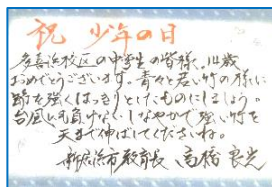 祝 少年の日
多喜浜校区の中学生の皆様、14歳
おめでとうございます。青々と若い竹の様に
節を強くはっきりとしたものにしましょう。
台風にも負けない しなやかで強い竹を
天まで伸ばしてくださいね。
新居浜市教育長 高橋良光